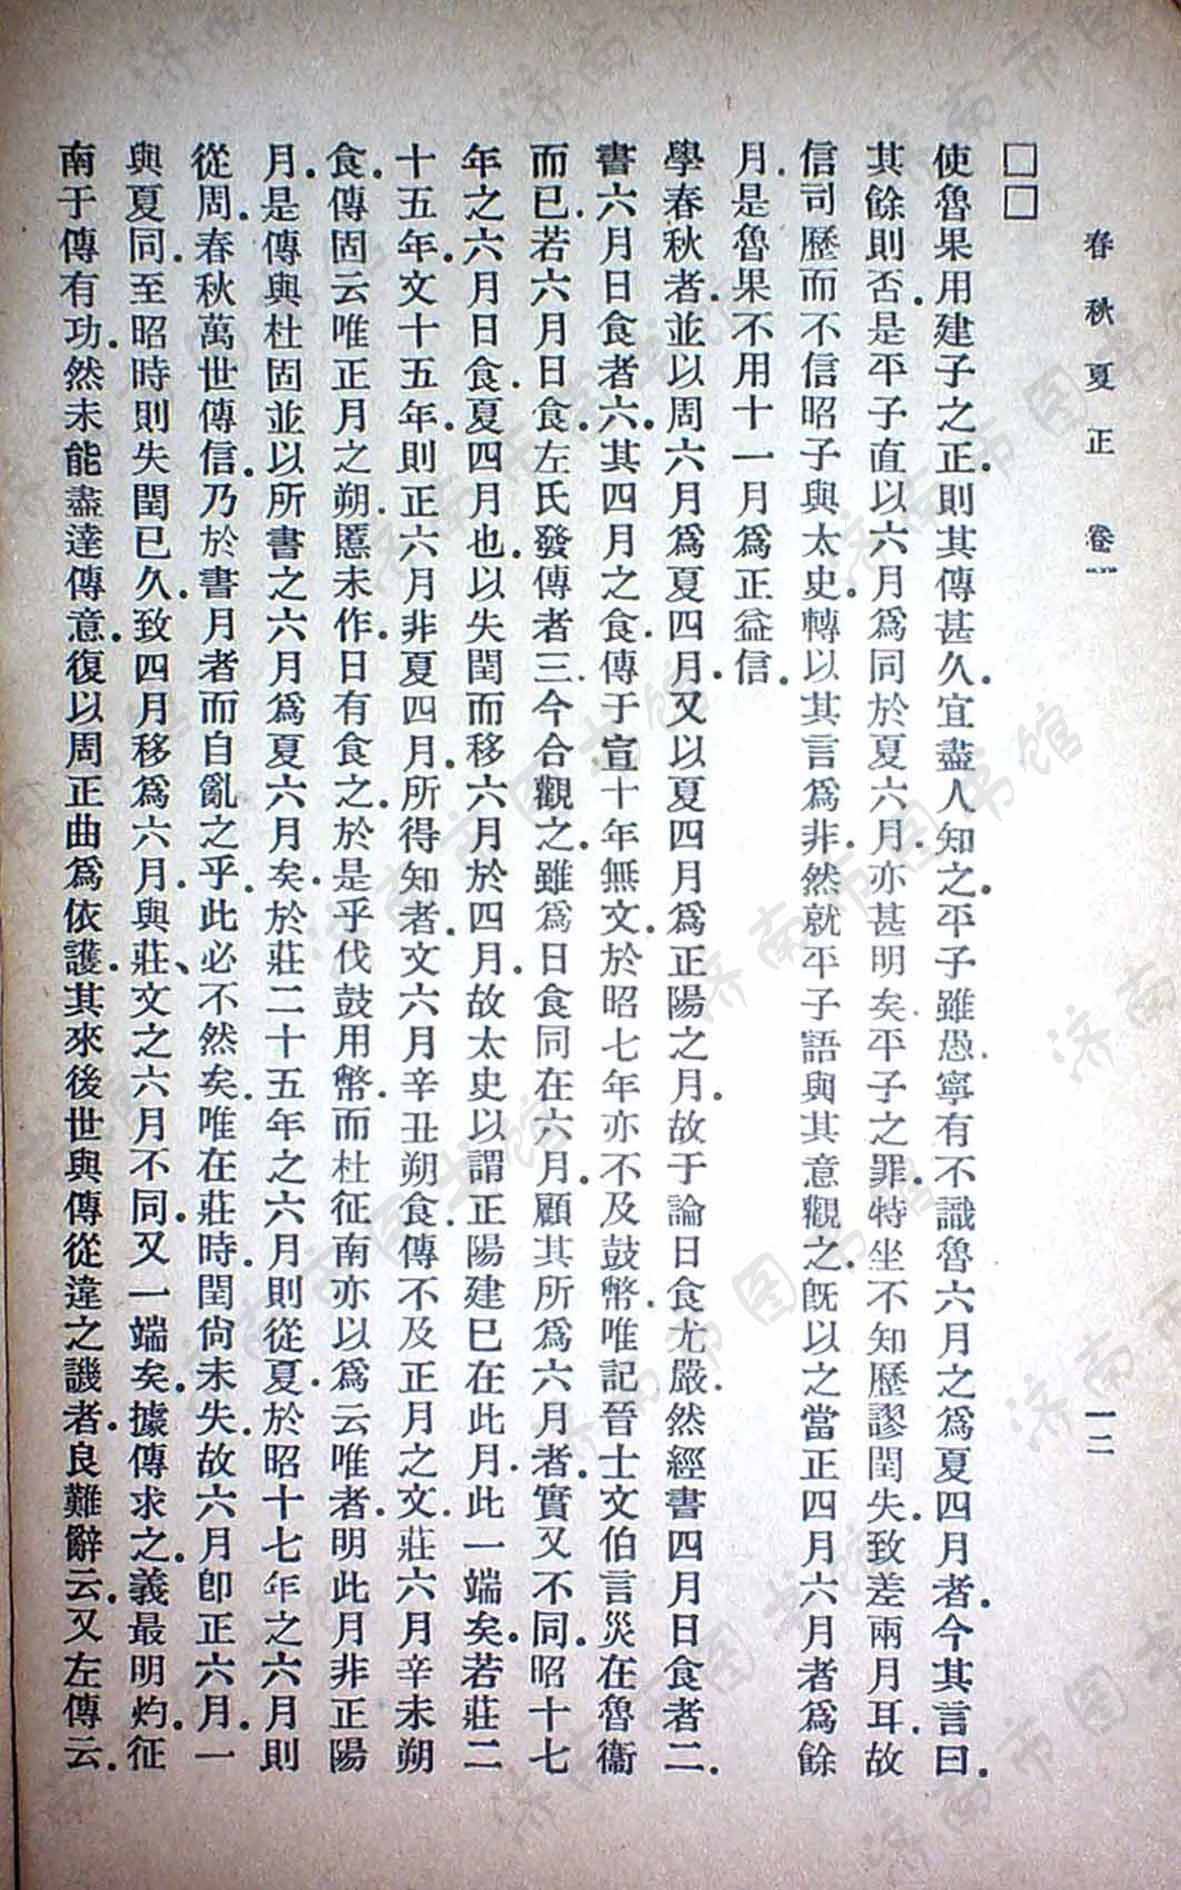 春秋夏正 卷 一二
□□
使魯果用建子之正．則其傳甚久．宜盡人知之．平子雖愚．寧有不識魯六月之爲夏四月者．今其言曰．
其餘則否．是平子直以六月爲同於夏六月．亦甚明矣．平子之罪．特坐不知歷謬閏失．致差兩月耳．故
信司歷而不信昭子與太史．轉以其言爲非．然就平子語與其意觀之．旣以之當正四月六月者爲餘
月．是魯果不用十一月爲正益信．
學春秋者．並以周六月爲夏四月．又以夏四月爲正陽之月．故于論日食尤嚴．然經書四月日食者二．
書六月日食者六．其四月之食．傳于宣十年無文．於昭七年亦不及鼓幣．唯記晉士文伯言災在魯衞
而已．若六月日食．左氏發傳者三．今合觀之．雖爲日食同在六月．顧其所爲六月者．實又不同．昭十七
年之六月日食．夏四月也．以失閏而移六月於四月．故太史以謂正陽建巳在此月．此一端矣．若莊二
十五年．文十五年．則正六月非夏四月．所得知者．文六月辛丑朔食．傳不及正月之文．莊六月辛未朔
食．傳固云唯正月之朔．慝未作．日有食之．於是乎伐鼓用幣．而杜征南亦以爲云唯者．明此月非正陽
月．是傳與杜固並以所書之六月爲夏六月矣．於莊二十五年之六月則從夏．於昭十七年之六月則
從周．春秋萬世傳信．乃於書月者而自亂之乎．此必不然矣．唯在莊時．閏尙未失．故六月卽正六月．一
與夏同．至昭時則失閏已久．致四月移爲六月．與莊、文之六月不同．又一端矣．據傳求之．義最明灼．征
南于傳有功．然未能盡達傳意．復以周正曲爲依護．其來後世與傳從違之譏者．良難辭云．又左傳云．
济南市图书馆